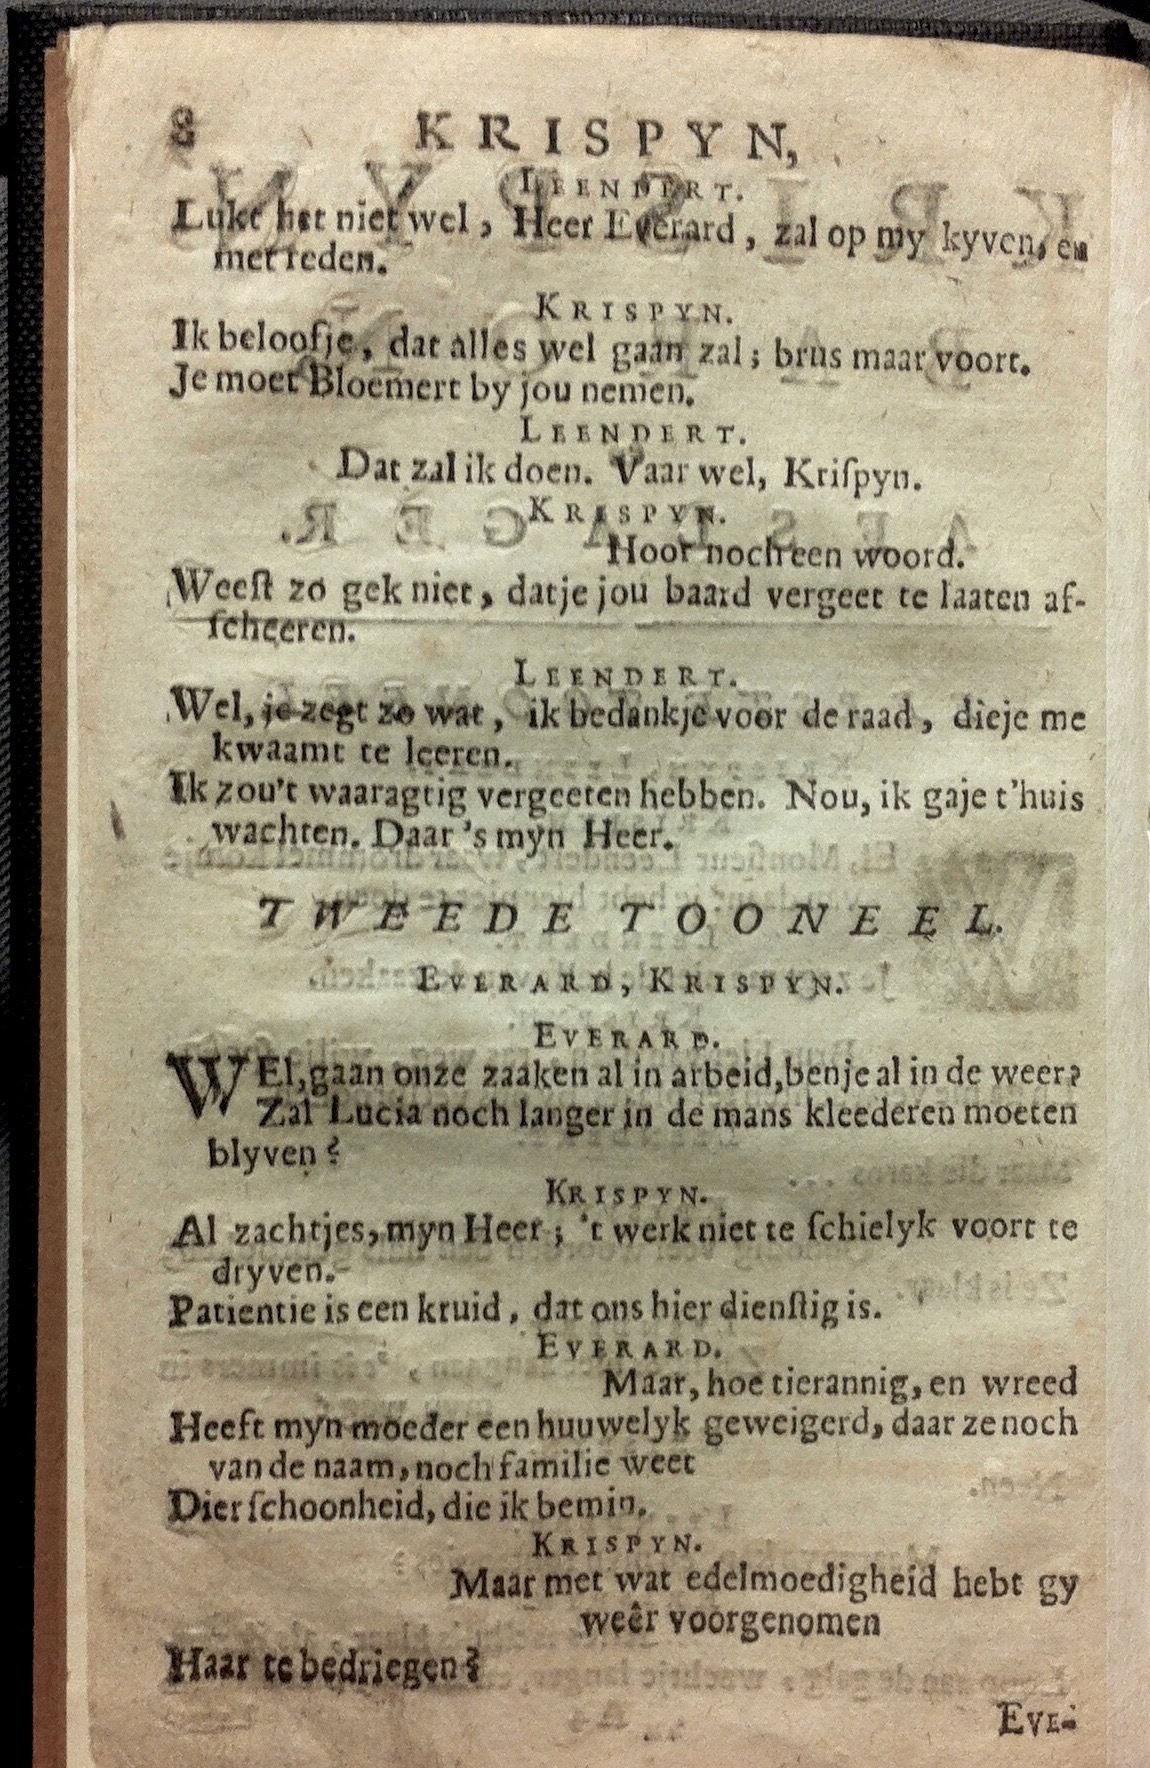 8 KRISPYN,
LEENDERT.
Lukt het niet wel, Heer Everard, zal op my kyven, en
met reden.
KRISPYN.
Ik beloofje, dat alles wel gaan zal; brus maar voort.
Je moet Bloemert by jou nemen.
LEENDERT.
Dat zal ik doen. Vaar wel, Kriſpyn.
KRISPYN.
Hoor noch een woord.
Weeſt zo gek niet, datje jou baard vergeet te laaten af-
ſcheeren.
LEENDERT.
Wel, je zegt zo wat, ik bedankje voor de raad, dieje me
kwaamt te leeren.
Ik zou't waaragtig vergeeten hebben. Nou, ik gaje t'huis
wachten. Daar 's myn Heer.
TWEEDE TOONEEL.
EVERARD, KRISPYN.
EVERARD.
WEl, gaan onze zaaken al in arbeid, benje al in de weer?
Zal Lucia noch langer in de mans kleederen moeten
blyven?
KRISPYN.
Al zachtjes, myn Heer; 't werk niet te ſchielyk voort te
dryven.
Patientie is een kruid, dat ons hier dienſtig is.
EVERARD.
Maar, hoe tierannig, en wreed
Heeft myn moeder een huuwelyk geweigerd, daar ze noch
van de naam, noch familie weet
Dier ſchoonheid, die ik bemin.
KRISPYN.
Maar met wat edelmoedigheid hebt gy
weêr voorgenomen
Haar te bedriegen?
EVE-